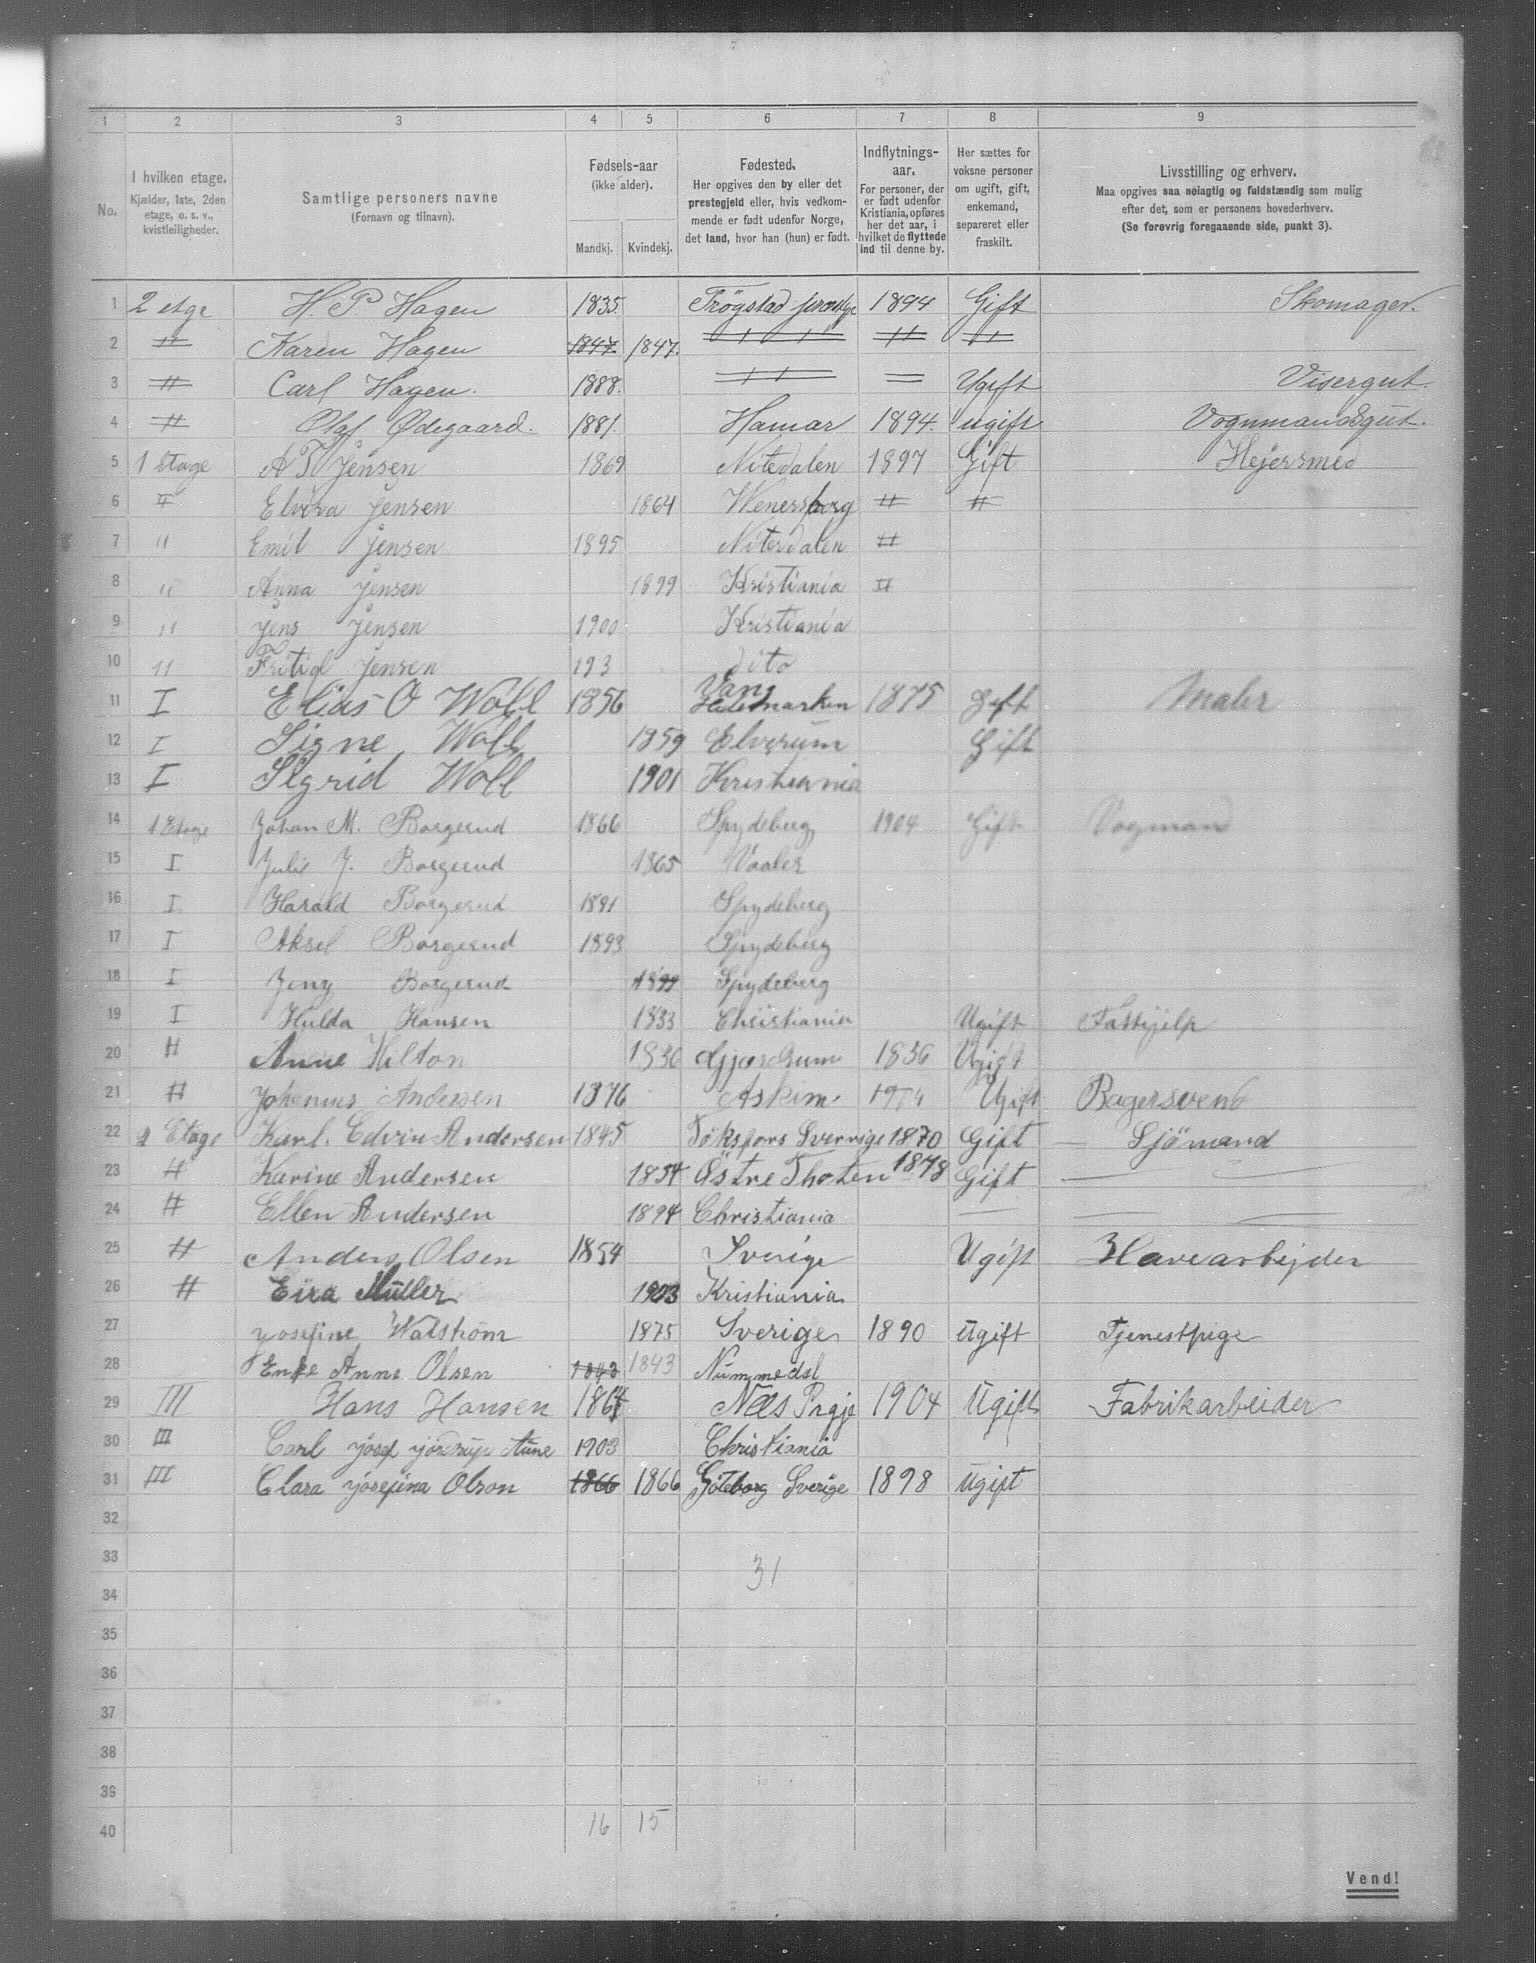 1 2 3 4 5 6 7 8 9
No.
I hvilken etage.
Kjælder, 1ste, 2den
etage, o. s. v.,
kvistleiligheder.
Samtlige personers navne
(Fornavn og tilnavn).
Fødsels-aar
(ikke alder).
Mandkj. Kvindekj.
Fødested.
Her opgives den by eller det
prestegjeld eller, hvis vedkom-
mende er født udenfor Norge,
det land, hvor han (hun) er født.
Indflytnings-
aar.
For personer, der
er født udenfor
Kristiania, opføres
her det aar, i
hvilket de flyttede
ind til denne by.
Her sættes for
voksne personer
om ugift, gift,
enkemand,
separeret eller
fraskilt.
Livsstilling og erhverv.
Maa opgives saa nøiagtig og fuldstændig som mulig
efter det, som er personens hovederhverv.
(Se forøvrig foregaaende side, punkt 3).
1 2 etge H. P Hagen 1835. Trögstad 1894 Gift Skomager.
2 " Karen Hagen 1847 1847. " " "
3 " Carl Hagen. 1888. " " Ugift Visergut.
4 " Olaf Ødegaard. 1881 Hamar 1894. ugift Vognmandsgut.
5 1 Etage A T Jensen 1869 Nitedalen 1897 Gift Hejersmed
6 " Elvira Jensen 1864 Wenersborg " "
7 " Emil Jensen 1895 Niterdalen "
8 " Anna Jensen 1899 Kristiania "
9 " Jens Jensen 1900 Kristiania
10 " Fritiof Jensen 193 dito
11 I Elias O Woll 1856 Vang Hedemarken 1875 Gift Maler
12 I Signe Woll 1859 Elverum Gift
13 I Sigrid Woll 1901 Kristiania
14 1 Etage Johan M. Borgerud 1866 Spydeberg 1904 Gift Vogmand
15 I Julie J. Borgerud 1865 Vaaler
16 I Harald Borgerud 1891 Spydeberg
17 I Aksel Borgerud 1893 Spydeberg
18 I Jeny Borgerud 1899 Spydeberg
19 I Hulda Hansen 1883 Christiania Ugift
20 " Anne Hilton 1836 Gjærdrum 1836 Ugift
21 " Johenius Andersen 1876 Askim 1904 Ugift Bagersvend
22 2 Etage Karl. Edvin Andersen 1845 Töksfors Sverrige 1870 Gift — Sjömand
23 " Karine Andersen 1854 Østre Thoten 1878 Gift —
24 " Ellen Andersen 1894 Christiania — —
25 " Anders Olsen 1854 Sverige Ugift Havearbejder
26 " Eira Müller 1903 Kristiania
27 Josefine Walström 1875 Sverige 1890 ugift Tjenestpige
28 Enke Anne Olsen 1843 1843 Nummedal
29 III Hans Hansen 1864 Næs 1904 Ugift Fabrikarbeider
30 III Carl Josef Aune 1903 Christiania
31 III Clara Josefina Olson 1866 1866 Göteborg Sverige 1898 ugift
32
33
31
34
35
36
37
38
39
40 16 15
Vend!